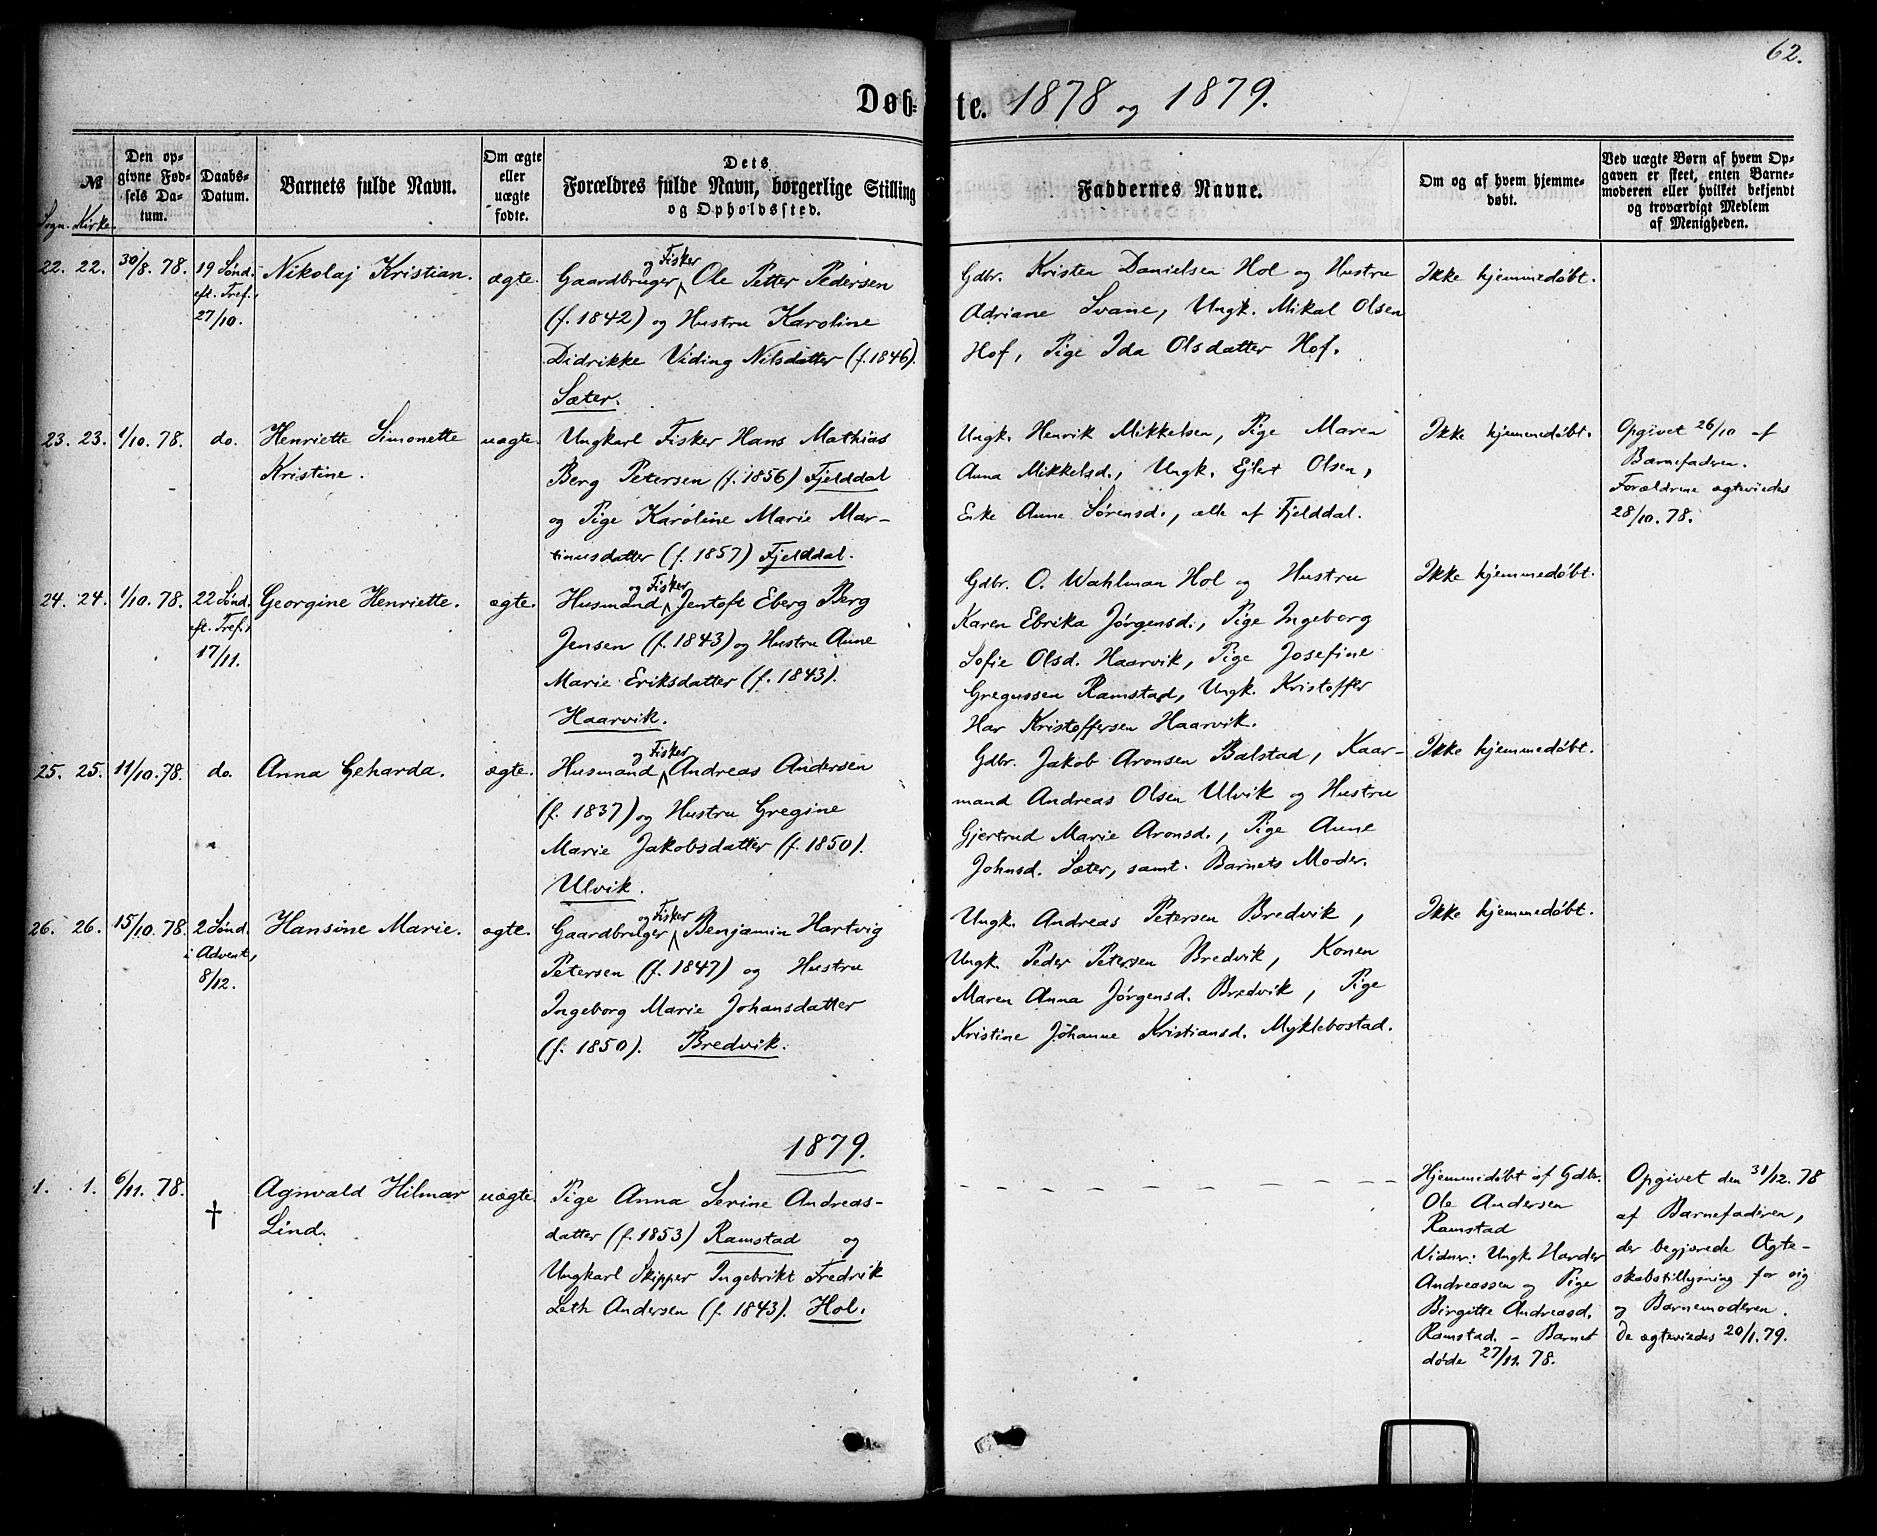 62.
Døb-te. 1878 og 1879.
№
Sogn. Kirke.
Den op-
givne Fød-
sels Da-
tum.
Daabs-
Datum.
Barnets fulde Navn.
Om ægte
eller
uægte
fødte.
Dets
Forældres fulde Navn, borgerlige Stilling
og Opholdssted.
Faddernes Navne.
Om og af hvem hjemme-
døbt.
Ved uægte Børn af hvem Op-
gaven er skeet, enten Barne-
moderen eller hvilket bekjendt
og troværdigt Medlem
af Menigheden.
22. 22. 30/8. 78.
19 Sønd.
eft. Tref.,
27/10.
Nikolaj Kristian.
ægte.
og Fisker
Gaardbruger Ole Petter Pedersen
(f. 1842) og Hustru Karoline
Didrikke Viding Nilsdatter (f. 1846).
Sæter.
Gdbr. Kristen Danielsen Hol og Hustru
Adriane Svane, Ungk. Mikal Olsen
Hof, Pige Ida Olsdatter Hof.
Ikke hjemmedøbt.
23. 23. 1/10. 78.
do.
Henriette Simonette
Kristine.
uægte.
Ungkarl Fisker Hans Mathias
Berg Petersen (f. 1856) Fjelddal
og Pige Karoline Marie Mar-
tinusdatter (f. 1857) Fjelddal.
Ungk. Henrik Mikkelsen, Pige Maren
Anna Mikkelsd., Ungk. Ejlert Olsen,
Enke Anne Sørensd., alle af Fjelddal.
Ikke hjemmedøbt.
Opgivet 26/10 af
Barnefaderen.
Forældrene ægteviedes
28/10. 78.
24. 24. 1/10. 78.
22 Sønd.
eft. Tref.,
17/11.
Georgine Henriette.
ægte.
og Fisker
Husmand Jentoft Eberg Berg
Jensen (f. 1843) og Hustru Anne
Marie Eriksdatter (f. 1843).
Haarvik.
Gdbr. O. Wahlman Hol og Hustru
Karen Ebrika Jörgensd., Pige Ingeborg
Sofie Olsd. Haarvik, Pige Josefine
Gregussen Ramstad, Ungk. Kristoffer
Har Kristoffersen Haarvik.
Ikke hjemmedøbt.
25. 25. 11/10. 78.
do.
Anna Geharda.
ægte.
og Fisker
Husmand Andreas Andersen
(f. 1837) og Hustru Gregine
Marie Jakobsdatter (f. 1850).
Ulvik.
Gdbr. Jakob Aronsen Balstad, Kaar-
mand Andreas Olsen Ulvik og Hustru
Gjertrud Marie Aronsd., Pige Anne
Johnsd. Sæter, samt. Barnets Moder.
Ikke hjemmedøbt.
26. 26. 15/10. 78.
2 Sønd.
i Advent,
8/12.
Hansine Marie.
ægte.
og Fisker
Gaardbruger Benjamin Hartvig
Petersen (f. 1847) og Hustru
Ingeborg Marie Johansdatter
(f. 1850). Bredvik.
Ungk. Andreas Petersen Bredvik,
Ungk. Peder Petersen Bredvik, Konen
Maren Anna Jørgensd. Bredvik, Pige
Kristine Johanne Kristiansd. Myklebostad.
Ikke hjemmedøbt.
1879.
1. 1. 6/11. 78.
†
Agnvald Hilmar
Lind.
uægte.
Pige Anna Serine Andreas-
datter (f. 1853) Ramstad og
Ungkarl Skipper Ingebrikt Fredrik
Leth Andersen (f. 1843). Hol.
Hjemmedøbt af Gdbr.
Ole Andersen
Ramstad
Vidner: Ungk. Harder
Andreassen og Pige
Birgitte Andreasd.
Ramstad. – Barnet
døde 27/11. 78.
Opgivet den 31/12. 78
af Barnefaderen,
der begjærede Ægte-
skabstillysning for sig
og Barnemoderen.
De ægteviedes 20/1. 79.